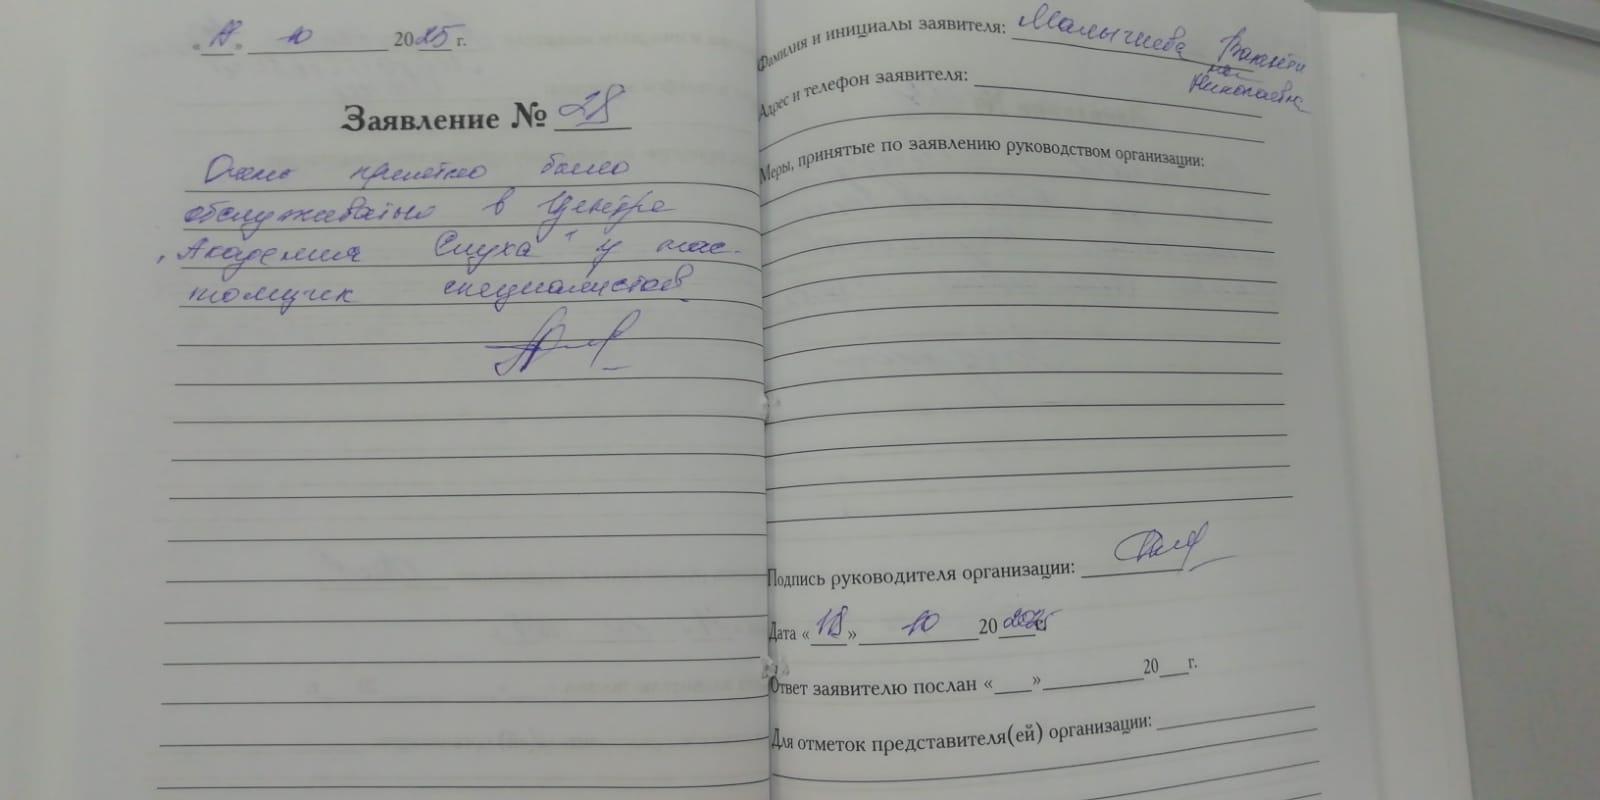 « » 10 2025 г.
Заявление № 28
Очень приятно было
обслуживаться в Центре
"Академия Слуха" у нас-
тоящих специалистов
Фамилия и инициалы заявителя: Малычева
Николаевна
Адрес и телефон заявителя:
Меры, принятые по заявлению руководством организации:
Подпись руководителя организации:
Дата «18» 10 20 2025г.
Ответ заявителю послан « » 20 г.
Для отметок представителя(ей) организации: